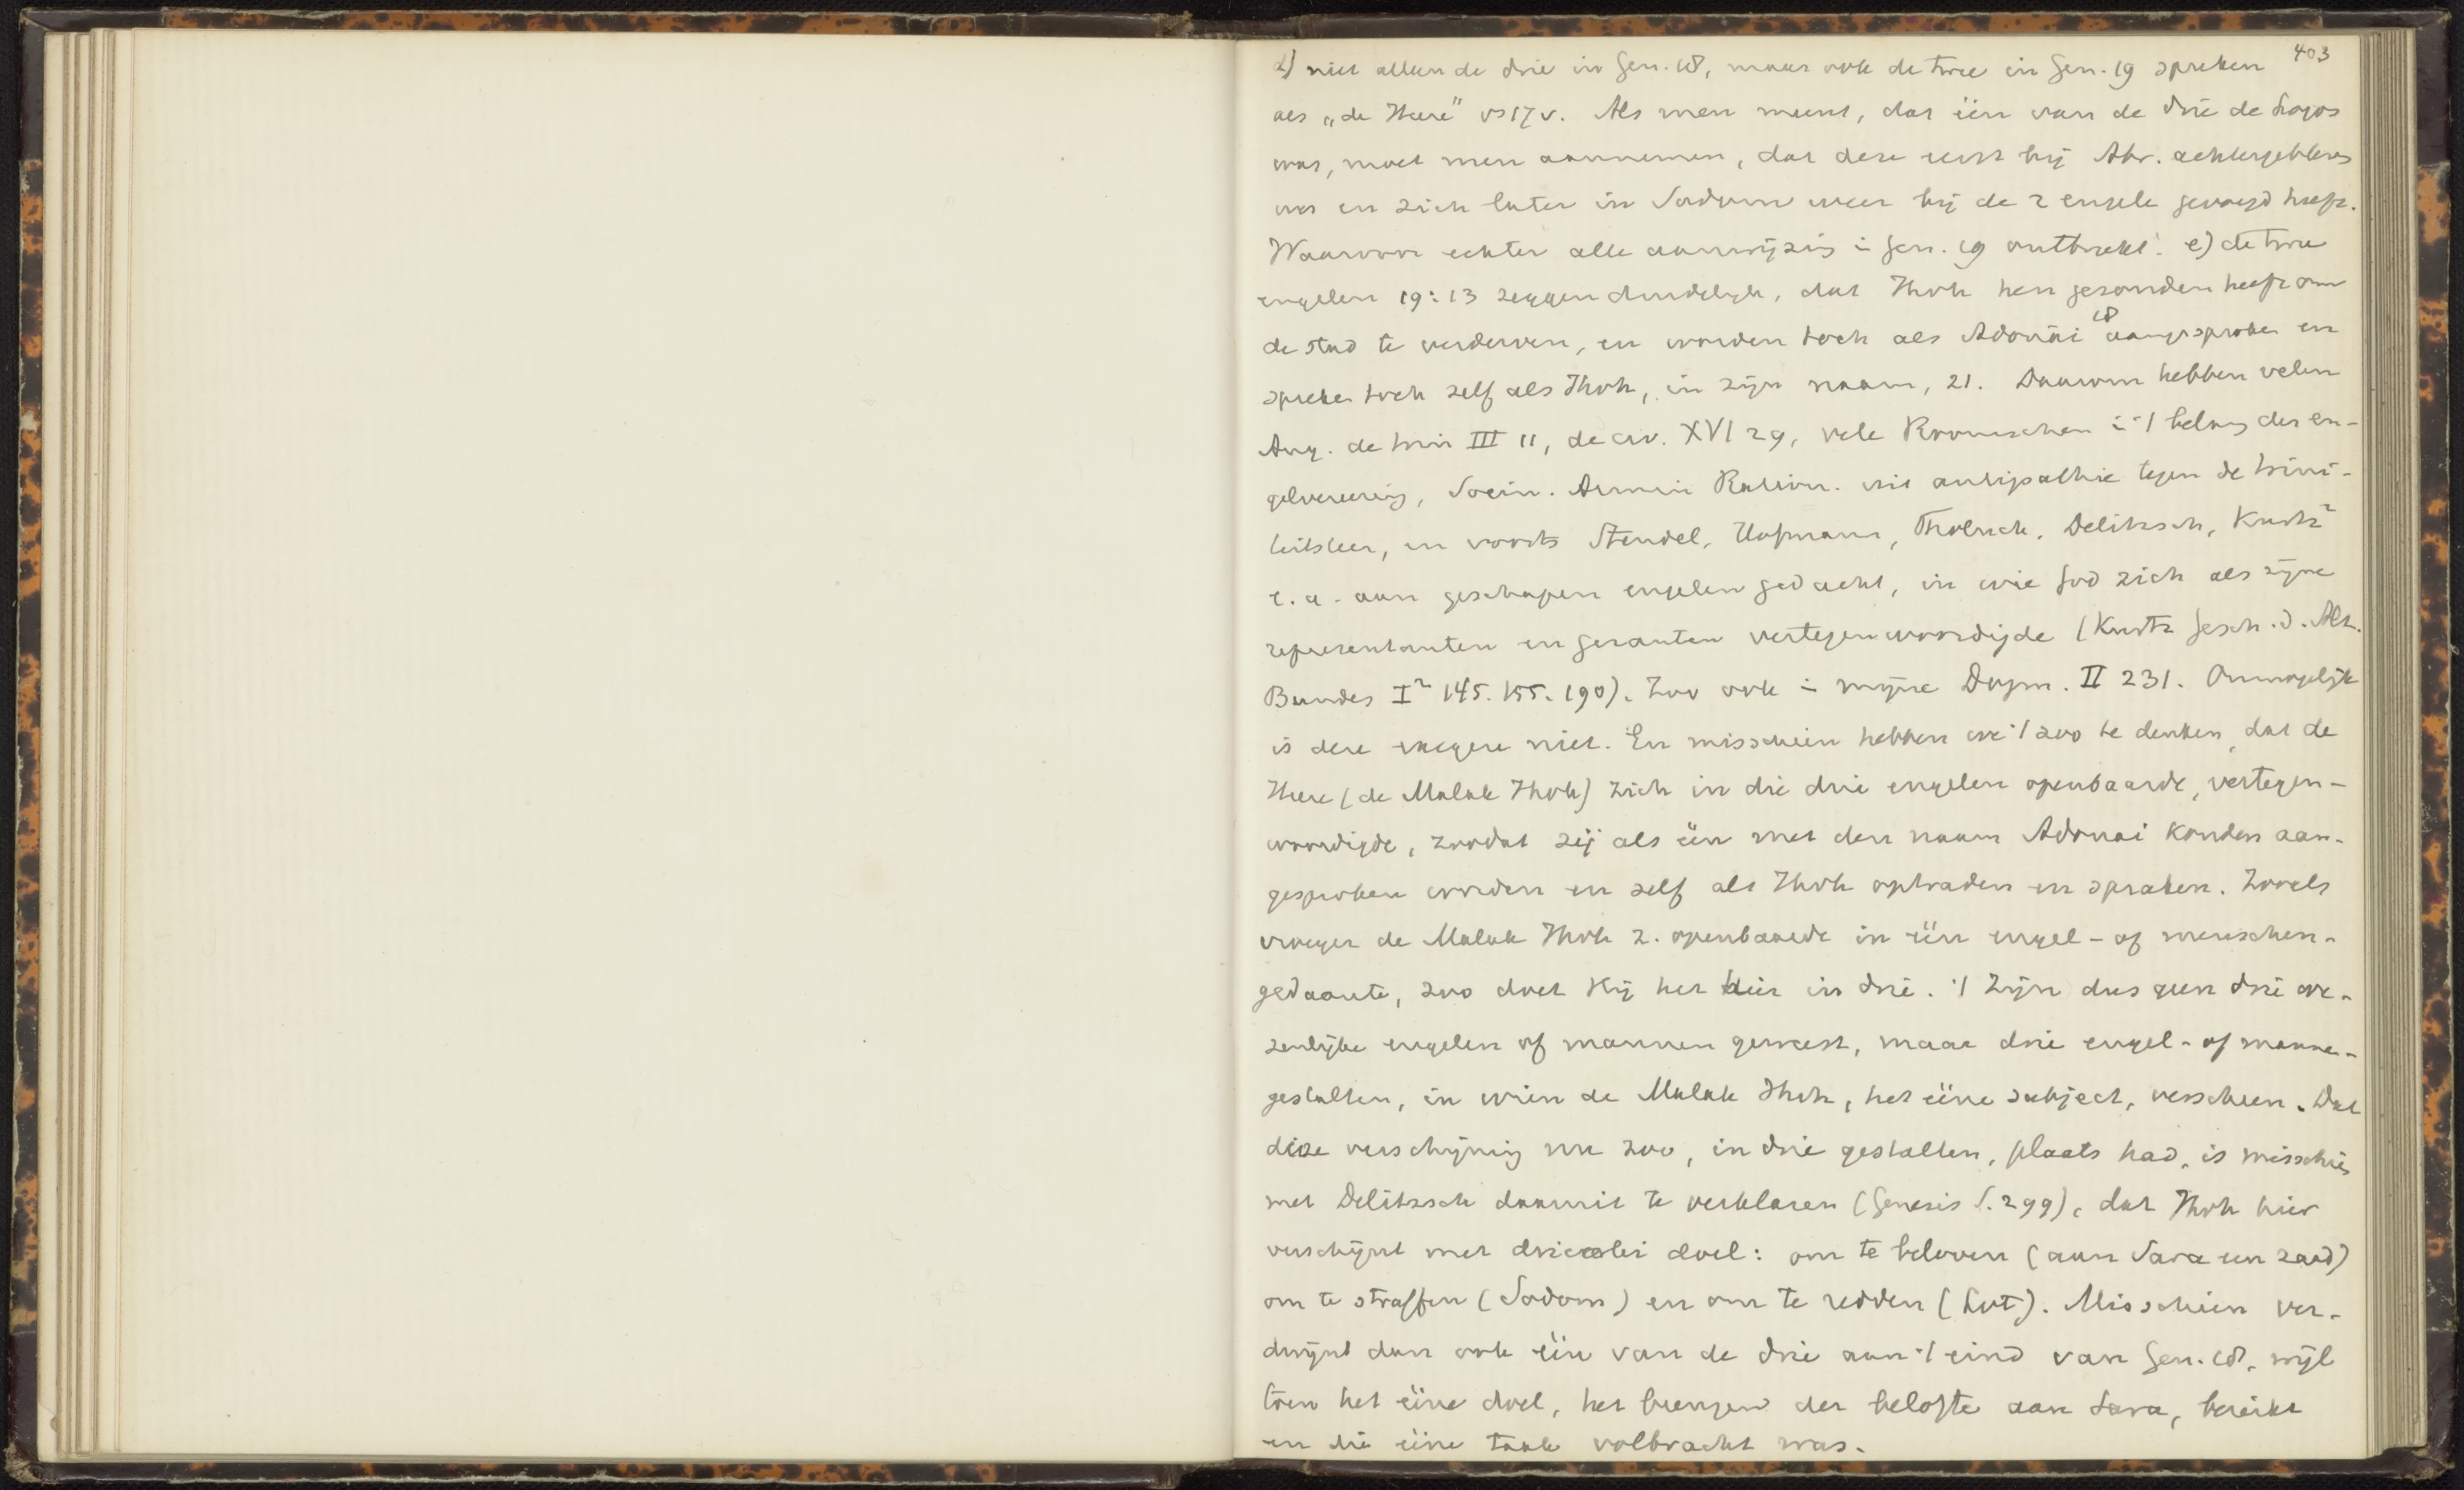 403
d) niet alleen de drie in Gen. 18, maar ook de twee in Gen. 19 spreken
als „de Heere" vs 17 v. Als men meent, dat één van de drie de Logos
was, moet men aannemen, dat deze eerst bij Abr. achtergebleven
was en zich later in Sodom weer bij de 2 engele gevoegd heeft.
Waarvoor echter alle aanwijzing in Gen. 19 ontbreekt. e) de twee
engelen 19:13 zeggen duidelijk, dat Jhvh hen gezonden heeft om
de stad te verderven, en worden toch als Adonai 18 aangesproken en
spreken toch zelf als Jhvh, in zijn naam, 21. Daarom hebben velen
Aug. de trin III 11, de civ. XVI 29, vele Roomschen in 't belang der en-
gelvereering, Socin. Armin Ration. uit antipathie tegen de trini-
teitsleer, en voorts Steudel, Hofmann, Tholuck, Delitzsch, Kurtz²
e.a. aan geschapen engelen gedacht, in wie God zich als zijne
representanten en gezanten vertegenwoordigde (Kurtz Gesch. d. Alt.
Bundes I² 145. 155. 190). Zoo ook in mijne Dogm. II 231. Onmogelijk
is deze exegese niet. En misschien hebben we 't zoo te denken, dat de
Heere (de Malak Jhvh) zich in die drie engelen openbaarde, vertegen-
woordigde, zoodat zij als één met den naam Adonai konden aan-
gesproken worden en zelf als Jhvh optraden en spraken. Zooals
vroeger de Malak Jhvh z. openbaarde in één engel- of menschen-
gedaante, zoo doet Hij het hier in drie. 't Zijn dus geen drie we-
zenlijke engelen of mannen geweest, maar drie engel- of manne-
gestalten, in wien de Malak Jhvh, het ééne subject, verscheen. Dat
deze verschijning nu zoo, in drie gestalten, plaats had, is misschien
met Delitzsch daaruit te verklaren (Genesis S. 299), dat Jhvh hier
verschijnt met drieërlei doel: om te beloven (aan Sara een zaad)
om te straffen (Sodom) en om te redden (Lot). Misschien ver-
dwijnt dan ook één van de drie aan 't eind van Gen. 18, wijl
toen het ééne doel, het brengen der belofte aan Sara, bereikt
en die ééne taak volbracht was.